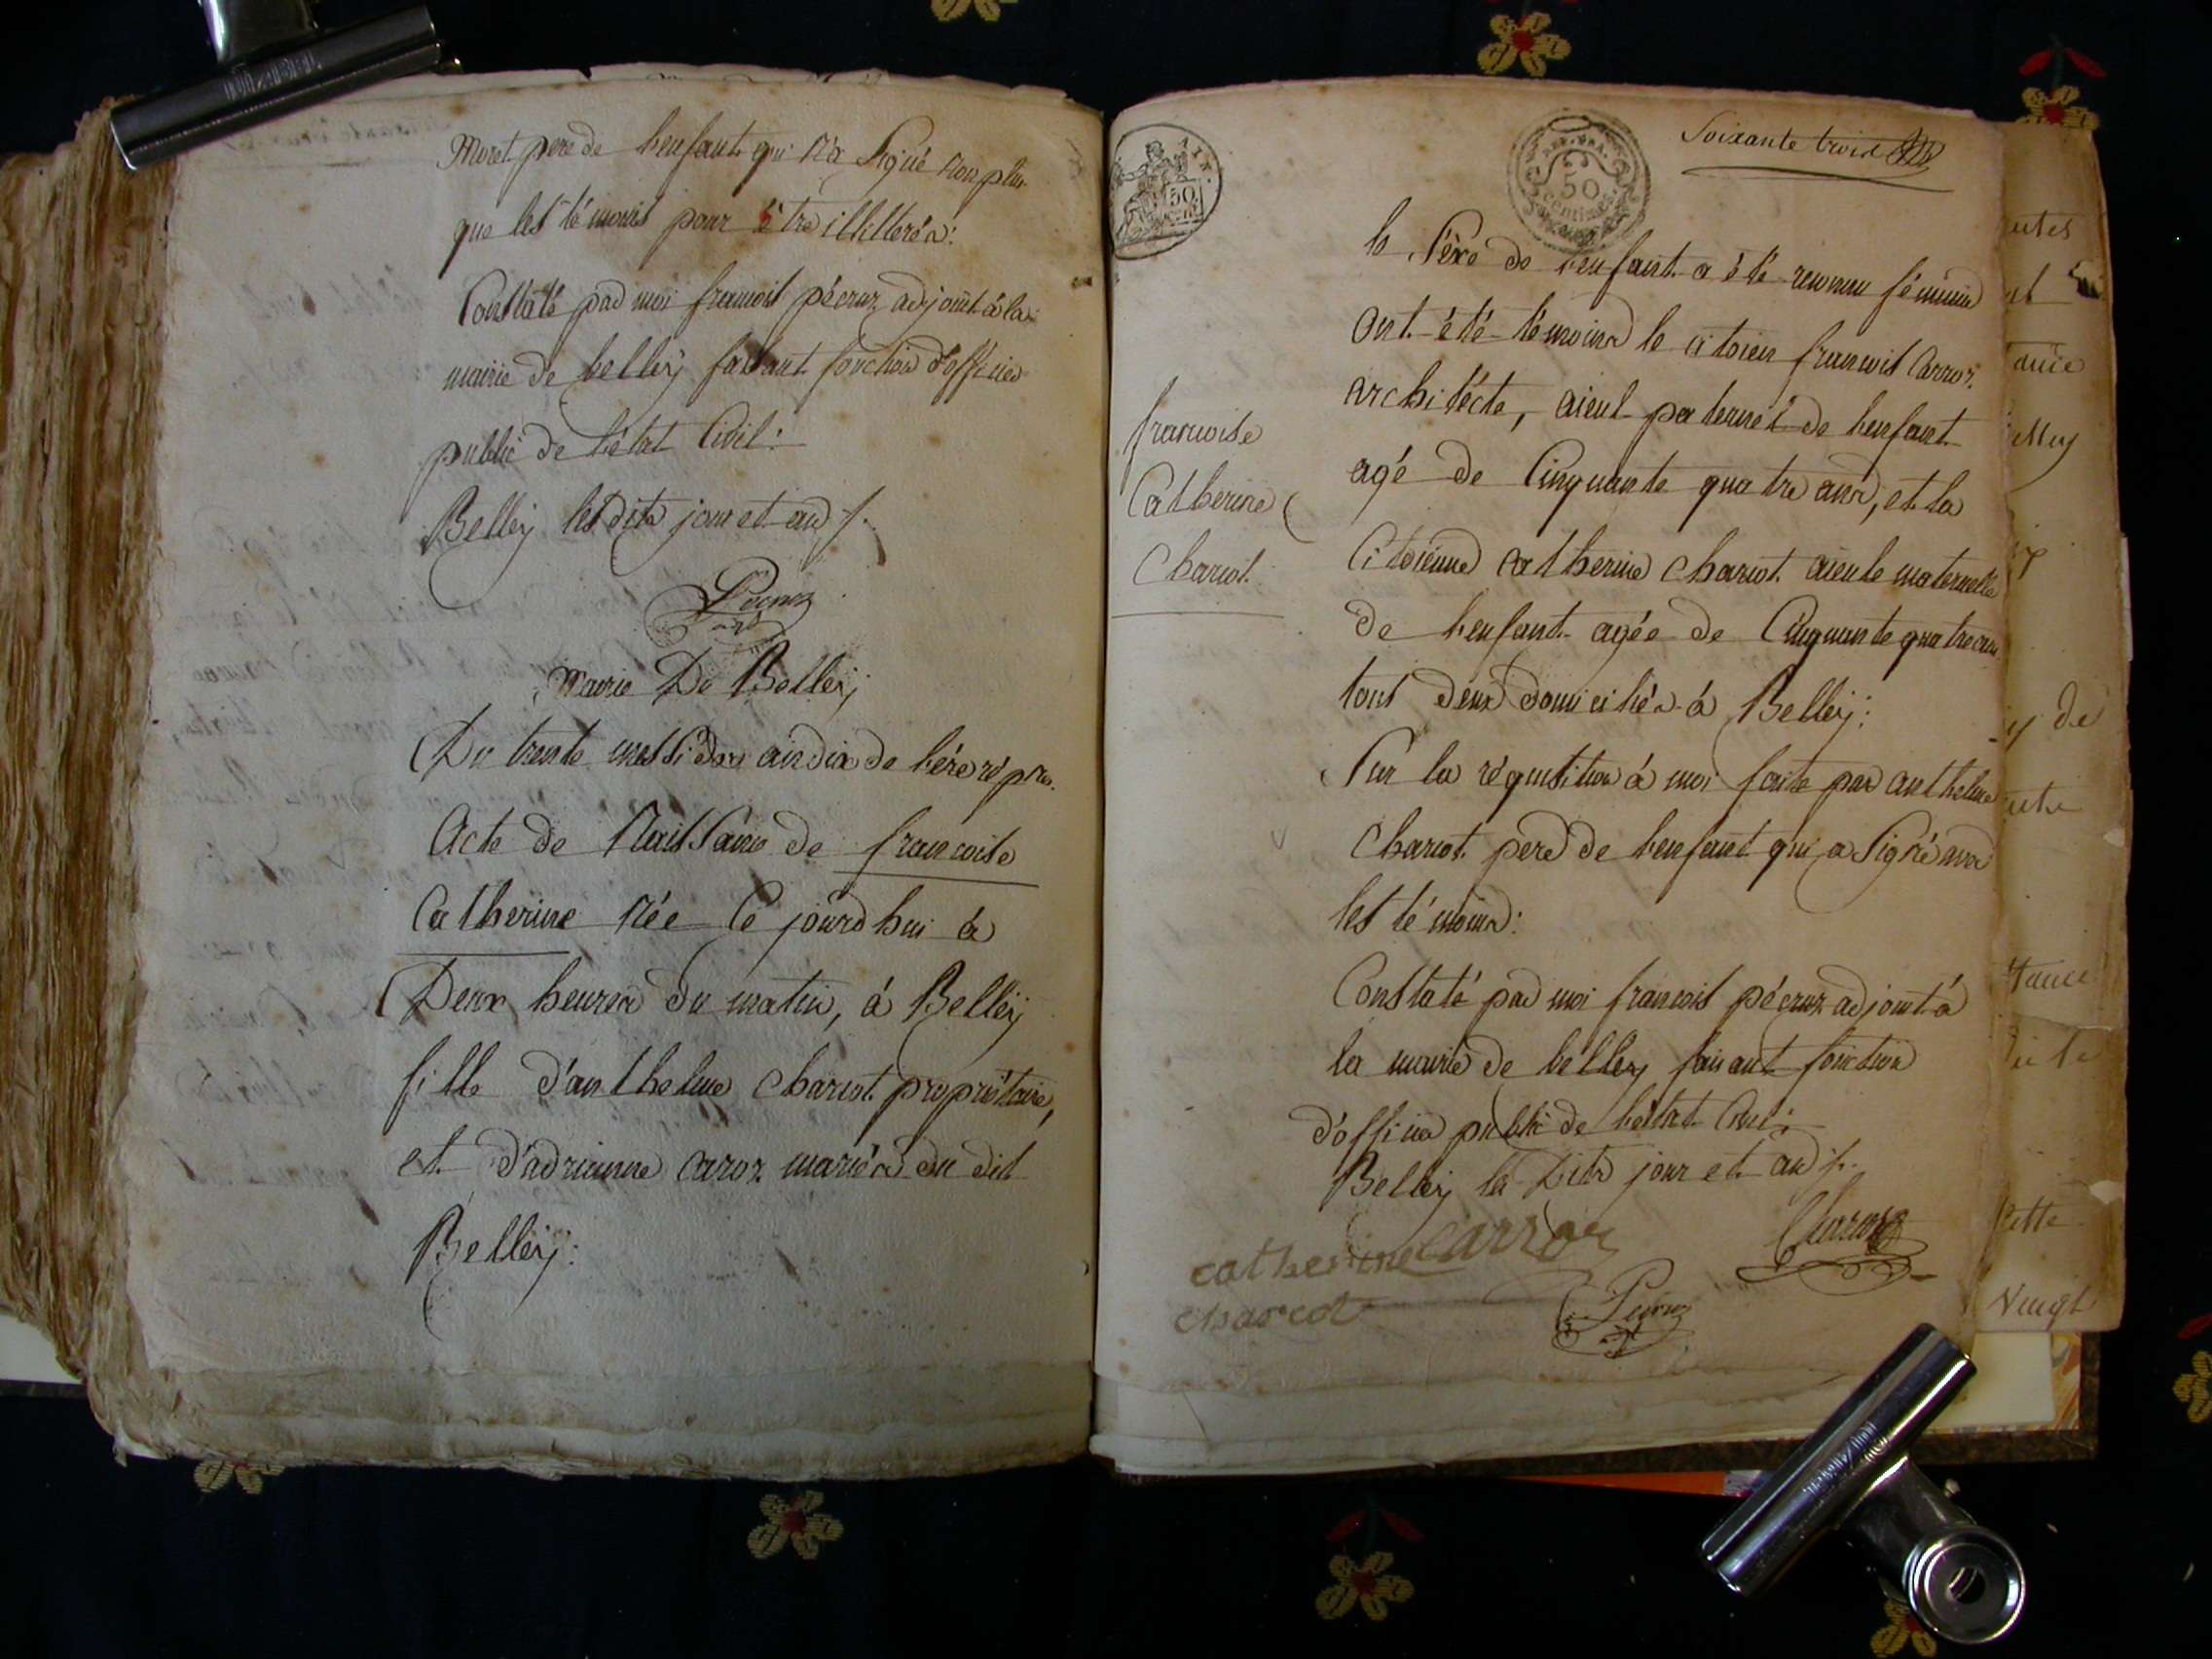 Moret pere de l'enfant qui n'a signé non plus
que les témoins pour être illitterés:
Constaté par moi francois pécruz adjoint à la
mairie de belleÿ faisant fonction d'officier
public de l'état Civil:
Belleÿ les dits jour et an /.
Pécruz
adjt
Mairie De Belleÿ
Du trente messidor an dix de l'ère rép ne.
Acte de Naissance de francoise
Catherine née Ce jourd'hui à
Deux heures du matin, à Belleÿ
fille d'anthelme charcot propriétaire,
et d'adrienne carroz mariés du dit
Belleÿ:
AIN.
50
REP. FRA.
50
centimes
Soixante trois
le Sexe de l'enfant a été reconnu féminin
Ont été témoins le citoien francois Carroz
architécte, aieul paternel de l'enfant
agé de Cinquante quatre ans, et la
Citoienne catherine charcot aieule maternelle
de l'enfant agée de Cinquante quatre ans
tous deux domiciliés à Belleÿ:
Sur la réquisition à moi faite par anthelme
charcot pere de l'enfant qui a signé avec
les témoins:
Constaté par moi francois pécruz adjoint à
la mairie de belleÿ faisant fonction
d'officier public de l'état Civil:
Belleÿ les Dits jour et an /.
catherine Carroz
charcot
Charcot
Pécruz
francoise
Catherine
Charcot
utes
ance
elley
y de
tance
cette
vingt